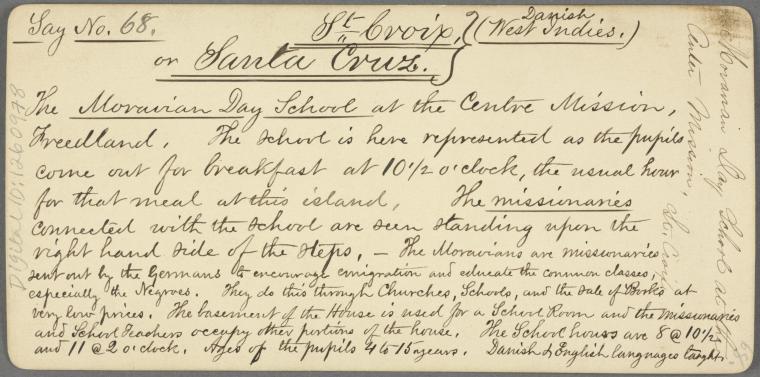 Say No. 68. St. Croix, (Danish West Indies.)
or Santa Cruz.
The Moravian Day School at the Centre Mission,
Freedland. The School is here represented as the pupils
come out for breakfast at 10 1/2 o'clock, the usual hour
for that meal at this island, The missionaries
connected with the School are seen standing upon the
right hand side of the steps, — The Moravians are missionaries
sent out by the Germans to encourage emigration and educate the common classes,
especially the Negroes. They do this through Churches, Schools, and the sale of Books at
very low prices. The basement of the House is used for a School Room and the missionaries
and School Teachers occupy other portions of the house. The School hours are 8 @ 10 1/2
and 11 @ 2 o'clock. Ages of the pupils 4 to 15 years. Danish & English languages taught.
Moravian Day School at the
Center Mission, St. Croix
68.
Digital ID: 1260978